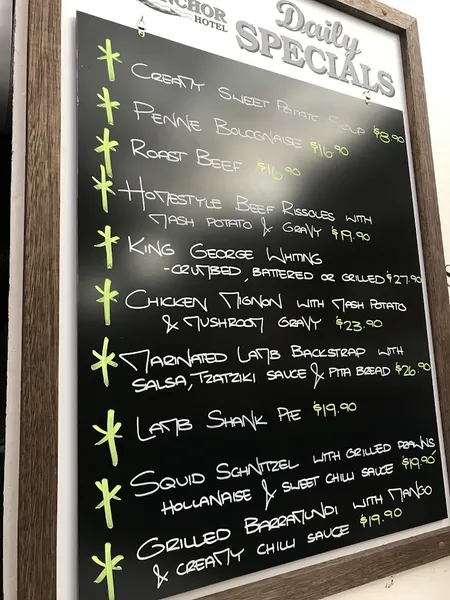 ANCHOR
HOTEL
Daily
SPECIALS
CREAMY SWEET POTATO SOUP $8.90
PENNE BOLOGNAISE $16.90
ROAST BEEF $16.90
HOMESTYLE BEEF RISSOLES WITH
MASH POTATO & GRAVY $19.90
KING GEORGE WHITING
-CRUMBED, BATTERED OR GRILLED $27.90
CHICKEN MIGNON WITH MASH POTATO
& MUSHROOM GRAVY $23.90
MARINATED LAMB BACKSTRAP WITH
SALSA, TZATZIKI SAUCE & PITA BREAD $26.90
LAMB SHANK PIE $19.90
SQUID SCHNITZEL WITH GRILLED PRAWNS
HOLLANAISE & SWEET CHILLI SAUCE $19.90
GRILLED BARRAMUNDI WITH MANGO
& CREAMY CHILLI SAUCE $19.90